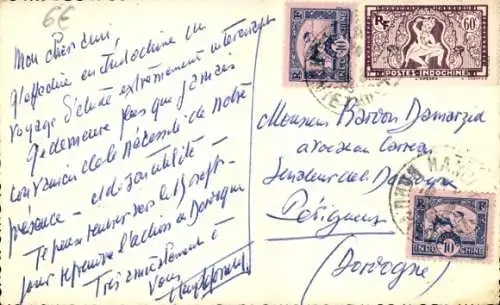 6€
Mon cher ami,
J'effectue en Indochine un
voyage d'étude extrêmement intéressant
Je demeure plus que jamais
convaincu de la nécessité de notre
présence – et de sa utilité –
Je pense rentrer vers le 15 sept
pour reprendre l'action en Dordogne
Très amicalement à
vous
Monsieur Bardon Damarzid
avocat
Sénateur de la Dordogne
Périgueux
(Dordogne)
RF
60c
POSTES INDOCHINE
10
INDOCHINE
10